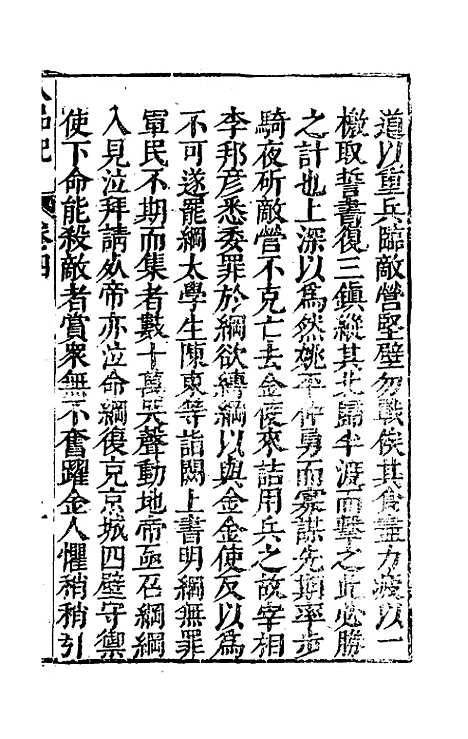 道以重兵臨敵營堅壁勿戰俟其食盡力疲以一
檄取誓書復三鎮縱其北歸半渡而擊之此必勝
之計也上深以爲然姚平仲勇而寡謀先期率步
騎夜斫敵營不克亡去金使來詰用兵之故宰相
李邦彦悉委罪於綱欲縳綱以與金金使反以爲
不可遂罷綱太學生陳東等詣闕上書明綱無罪
軍民不期而集者數十萬哭聲動地帝亟召綱綱
入見泣拜請死帝亦泣命綱復充京城四壁守禦
使下命能殺敵者賞衆無不奮躍金人懼稍稍引
人品記 卷四